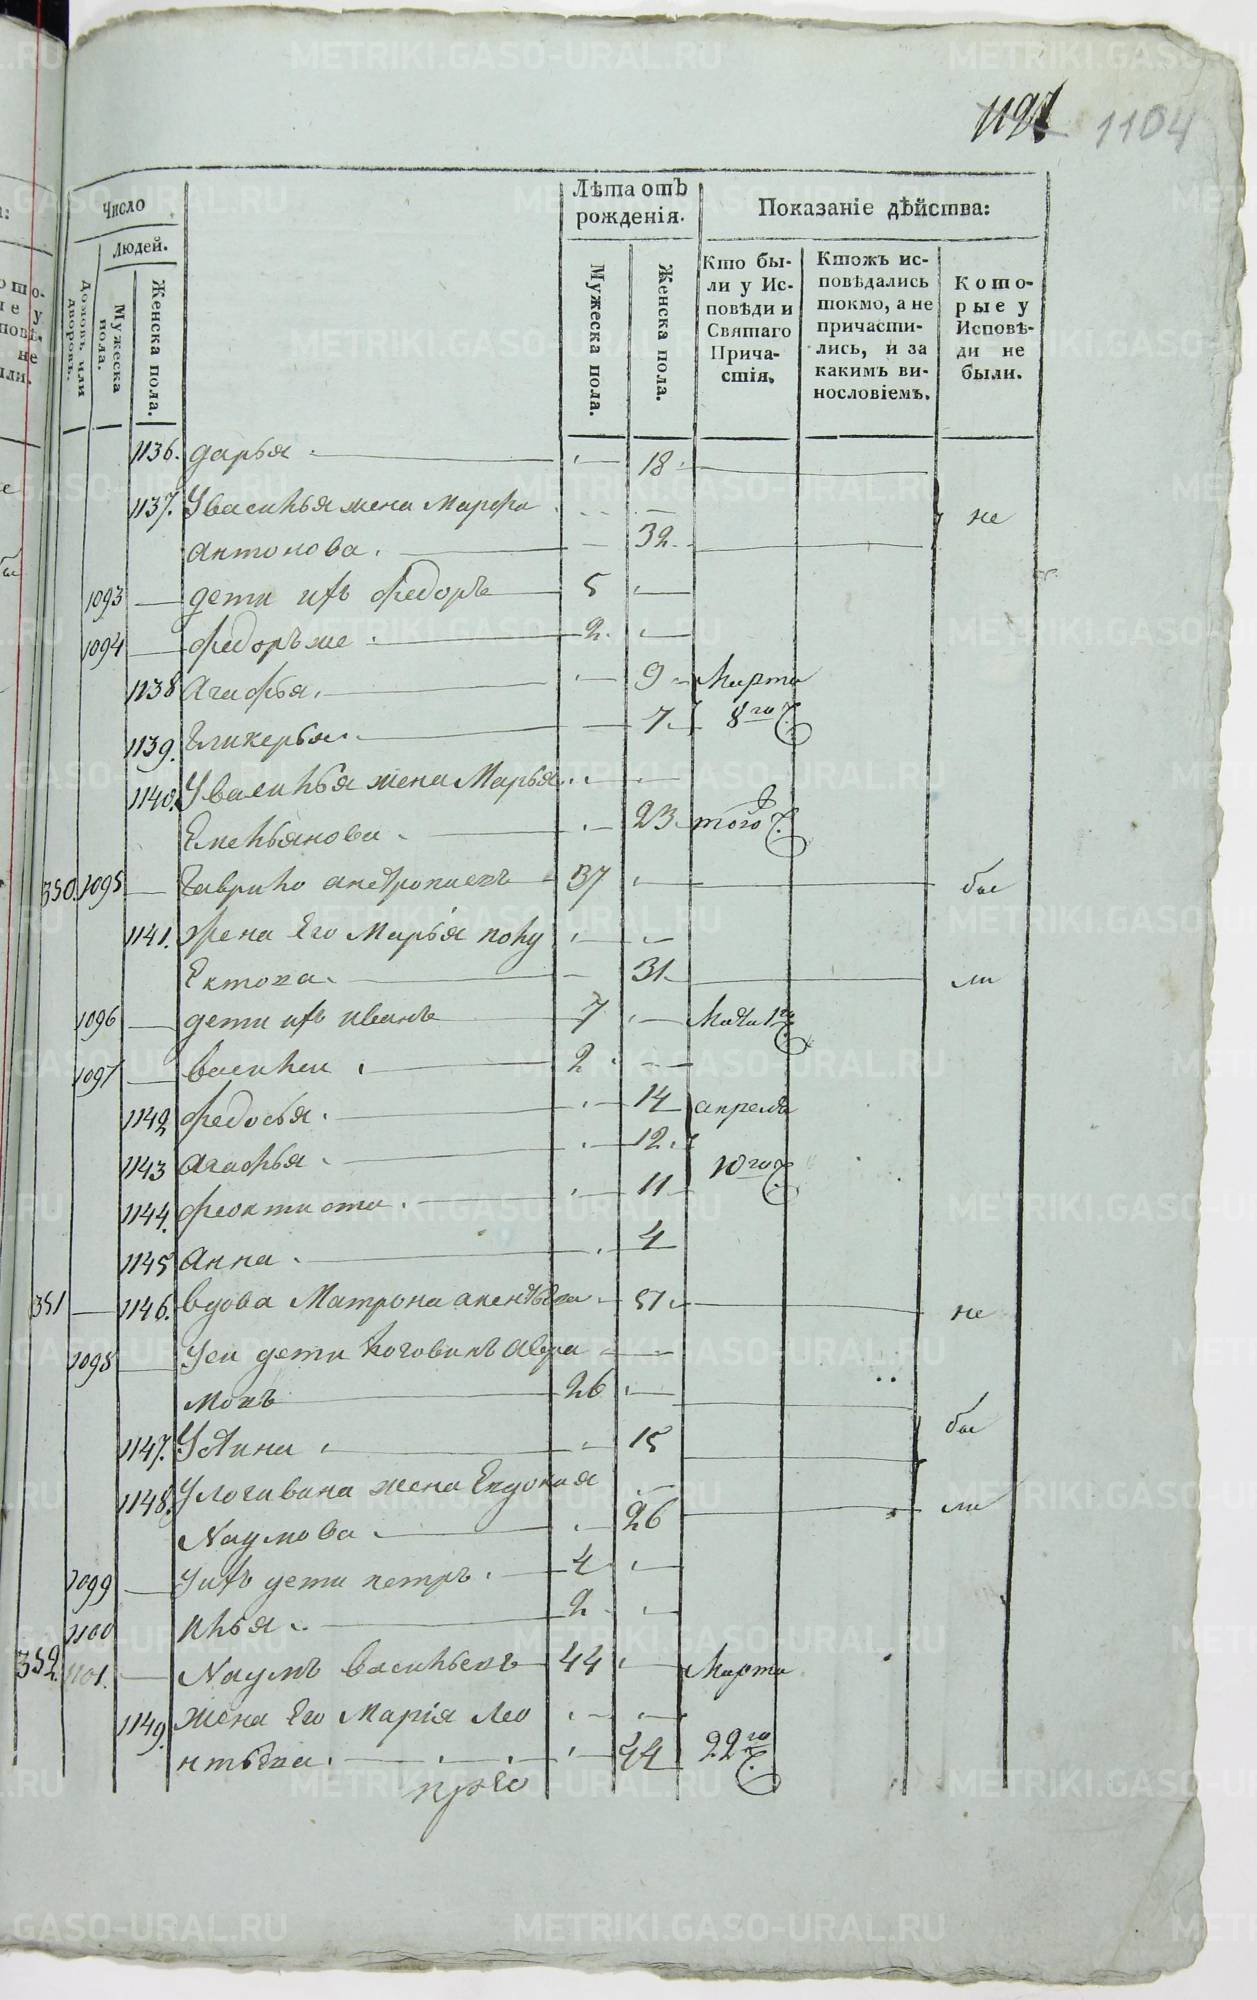 1104
Число
Людей.
Домовъ или дворовъ.
Мужеска пола.
Женска пола.
Лѣта отъ рожденія.
Мужеска пола.
Женска пола.
Показаніе дѣйства:
Кто бы-
ли у Ис-
повѣди и
Святаго
Прича-
стія.
Ктожъ ис-
повѣдались
токмо, а не
причасти-
лись, и за
какимъ ви-
нословіемъ.
Кото-
рые у
Исповѣ-
ди не
были.
1136. дарья 18
1137. Увасилья жена Марфа не
антонова 32
1093 дети ихъ федоръ 5
1094 федоръ же 2
1138 Агафья 9 Марта
1139. Гликерья 7 8го
1140. Увасилья жена Марья
Емельянова 23 того
350. 1095 Гаврило андрониевъ 37 бы
1141. жена Его Марья полу
Ектова 31 ли
1096 дети ихъ иванъ 7
1097 василеи 2
1142 федосья 14 апреля
1143 агафья 12 10го
1144. феоктиста 11
1145 анна 4
351 1146. вдова Матрона 51 не
1098 Уеи дети Логовинъ Авра
мовъ 26
1147. Устина 15 бы
1148. Улогавина жена Евдокия
Наумова 26 ли
1099 Уихъ дети петръ 4
1100 илья 2
352. 1101. Наумъ васильевъ 44 Марта
1149. жена Его Марія Лео
нтьева 44 22го
METRIKI.GASO-URAL.RU